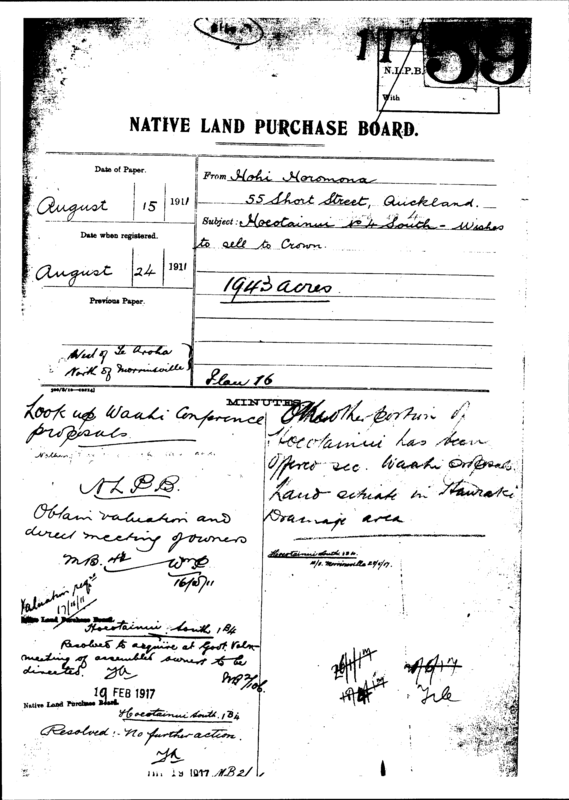 59
N.L.P.B.
With
NATIVE LAND PURCHASE BOARD.
Date of Paper.
August 15 1911
Date when registered.
August 24 1911
Previous Paper.
West of Te Aroha
North of Morrinsville
From Hohi Horomona
55 Short Street, Auckland.
Subject: Hoeotainui No 4 South - Wishes
to sell to Crown.
1943 acres
Plan 16
MINUTES
Look up Waahi Conference
proposals
N L P B.
Obtain valuation and
direct meeting of owners
M.B.
Valuation reqd
Native Land Purchase Board.
Hoeotainui South 1B4
Resolved to acquire at Govt. Valn
meeting of assembled owners to be
directed.
19 FEB 1917
Native Land Purchase Board.
Hoeotainui South. 1B4
Resolved: No further action.
19 1917 M B 21
Another portion of
Hoeotainui has been
offered see Waahi proposals.
Land situate in Hauraki
Drainage area
Hoeotainui South 1B4
File